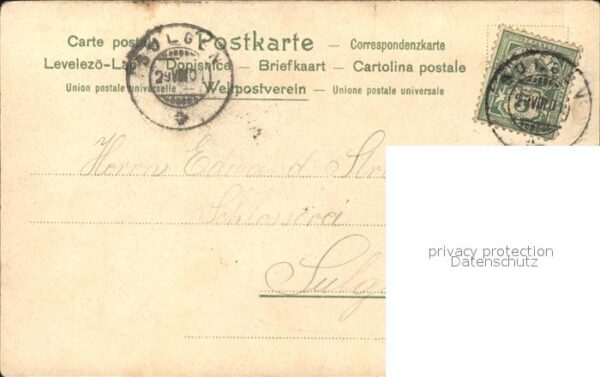 Carte postale – Postkarte – Correspondenzkarte
Levelező-Lap – Dopisnice – Briefkaart – Cartolina postale
Union postale universelle – Weltpostverein – Unione postale universale
SULGEN
29 VIII 0
29 VIII 0
Herrn Eduard
Schlosserei
Sulg
privacy protection
Datenschutz